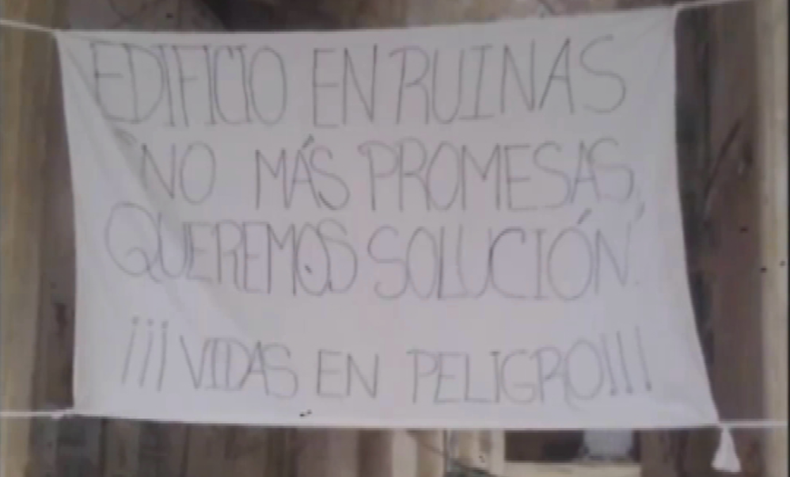 EDIFICIO EN RUINAS
"NO MÁS PROMESAS,
QUEREMOS SOLUCIÓN".
¡¡¡VIDAS EN PELIGRO!!!